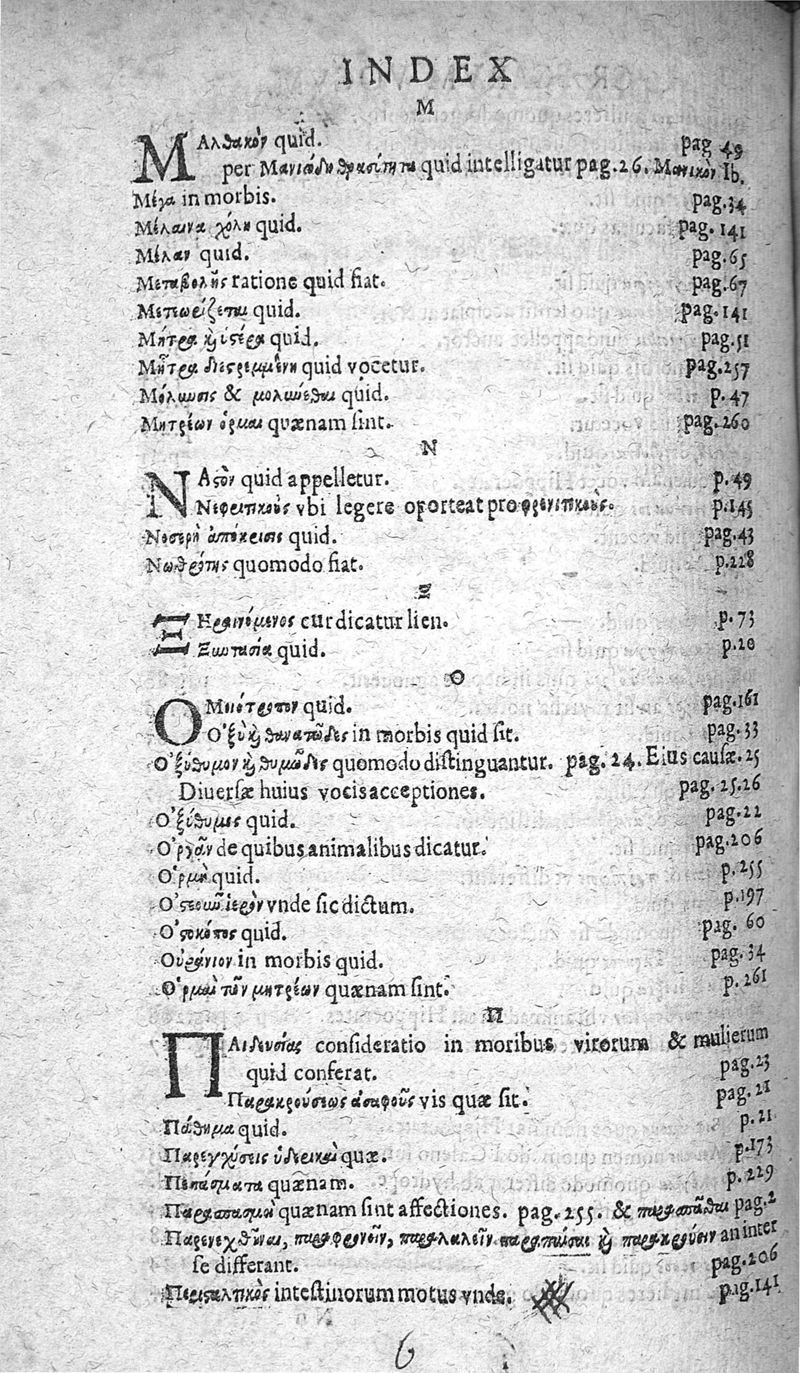 INDEX
M
ΜΑλθακὸν quid. pag 49
per quid intelligatur pag. 26. Μανικὸν Ib.
Μέγα in morbis. pag. 34
Μέλαινα χόλη quid. pag. 141
Μέλαν quid. pag. 65
Μεταβολῆς ratione quid fiat. pag. 67
Μετεωρίζεται quid. pag. 141
Μήτρα ἢ ὑστέρα quid. pag. 51
Μήτρα quid vocetur. pag. 257
Μόλυνσις & μολύνεσθαι quid. p. 47
Μητρέων ὁρμαι quænam sint. pag. 260
N
ΝΑστὸν quid appelletur. p. 49
Νεφριτικοὺς vbi legere oporteat pro φρενιτικοὺς. p. 145
Νοσερὴ ἀπόκρισις quid. pag. 43
Νωθρότης quomodo fiat. p. 228
Ξ
ΞΗραινόμενος cur dicatur lien. p. 73
quid. p. 20
O
quid. pag. 161
Ὀξὺ καὶ θανατῶδες in morbis quid sit. pag. 33
Ὀξύθυμον καὶ θυμῶδες quomodo distinguantur. pag. 24. Eius causæ. 25
Diuersæ huius vocis acceptiones. pag. 25. 26
Ὀξύθυμος quid. pag. 22
Ὀργᾶν de quibus animalibus dicatur. pag. 206
Ὁρμὴ quid. p. 255
vnde sic dictum. p. 197
Ὀστοκόπος quid. pag. 60
Οὐράνιον in morbis quid. pag. 34
Ὁρμαὶ τῶν μητρέων quænam sint. p. 261
Π
consideratio in moribus virorum & mulierum
quid conferat. pag. 23
Παρακρούσεως ἀσαφοῦς vis quæ sit. pag. 21
Πάθημα quid. p. 21
Παρεγχύσεις ὑδερικαὶ quæ. p. 173
Πεπάσματα quænam. p. 229
Παρασπασμοὶ quænam sint affectiones. pag. 255. & παρασπᾶσθαι pag. 2
Παρενεχθῆναι, παραφρονεῖν, παραλαλεῖν παραπαίσαι ἢ παρακρούειν an inter
se differant. pag. 206
Περισταλτικὸς intestinorum motus vnde. pag. 141
6